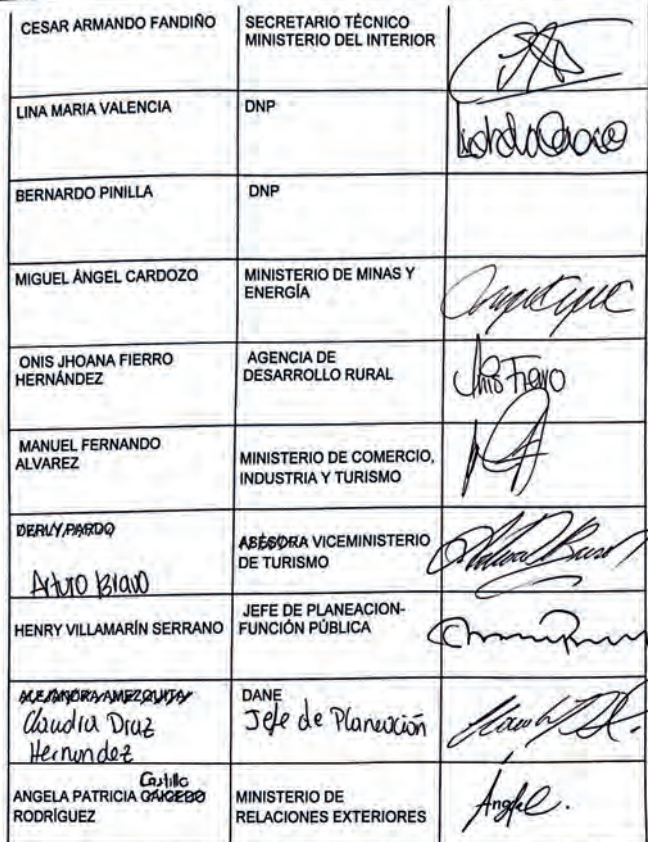 CESAR ARMANDO FANDIÑO
SECRETARIO TÉCNICO
MINISTERIO DEL INTERIOR
LINA MARIA VALENCIA
DNP
BERNARDO PINILLA
DNP
MIGUEL ÁNGEL CARDOZO
MINISTERIO DE MINAS Y
ENERGÍA
ONIS JHOANA FIERRO
HERNÁNDEZ
AGENCIA DE
DESARROLLO RURAL
MANUEL FERNANDO
ALVAREZ
MINISTERIO DE COMERCIO,
INDUSTRIA Y TURISMO
DERLY PARDO
Arturo Bravo
ASESORA VICEMINISTERIO
DE TURISMO
HENRY VILLAMARÍN SERRANO
JEFE DE PLANEACION-
FUNCIÓN PÚBLICA
ALEJANDRA AMEZQUITA
Claudia Díaz
Hernandez
DANE
Jefe de Planeación
Castillo
ANGELA PATRICIA CAICEDO
RODRÍGUEZ
MINISTERIO DE
RELACIONES EXTERIORES